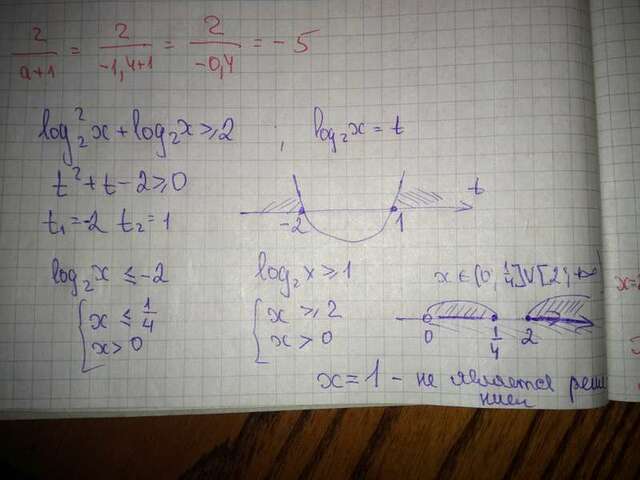 2/(a+1) = 2/(-1,4+1) = 2/(-0,4) = -5
log₂²x + log₂x ≥ 2 ; log₂x = t
t² + t - 2 ≥ 0
t₁ = -2 t₂ = 1
-2 1 t
log₂x ≤ -2 log₂x ≥ 1 x ∈ (0; 1/4] ∨ [2; +∞
{ x ≤ 1/4 { x ≥ 2
x > 0 x > 0
0 1/4 2
x = 1 - не является реше
нием